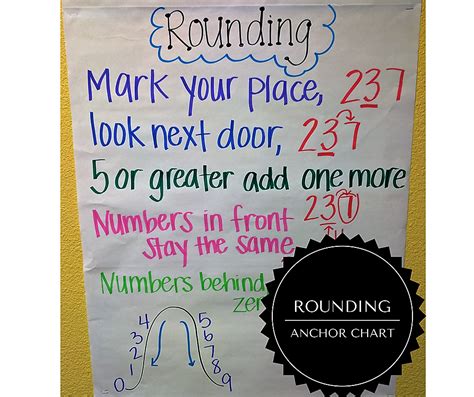 Rounding
Mark your place, 237
look next door, 237
5 or greater add one more
Numbers in front 237
stay the same
Numbers behind
4 5
3 6
2 7
1 8
0 9
ROUNDING
ANCHOR CHART